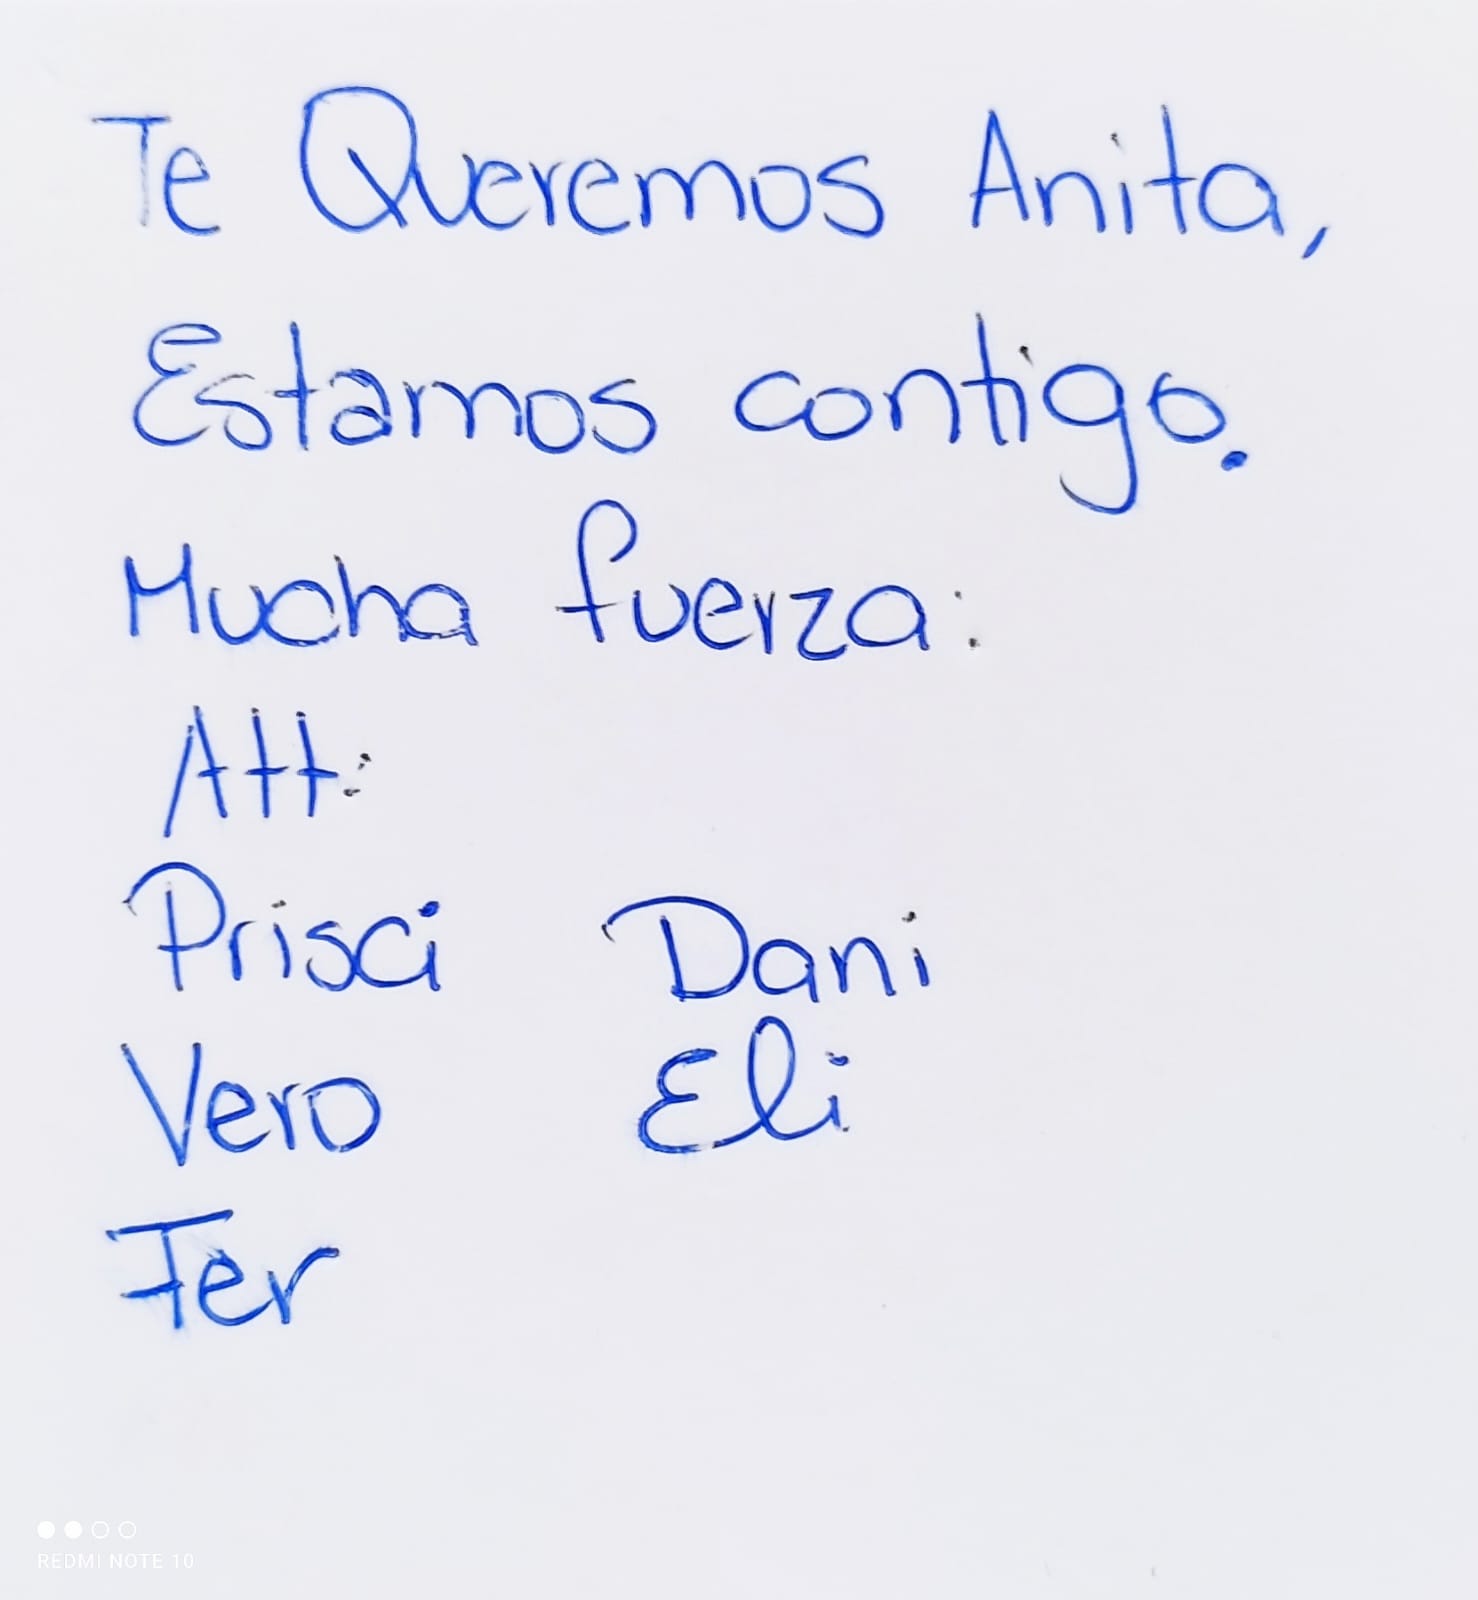 Te Queremos Anita,
Estamos contigo.
Mucha fuerza:
Att:
Prisci Dani
Vero Eli
Fer
REDMI NOTE 10